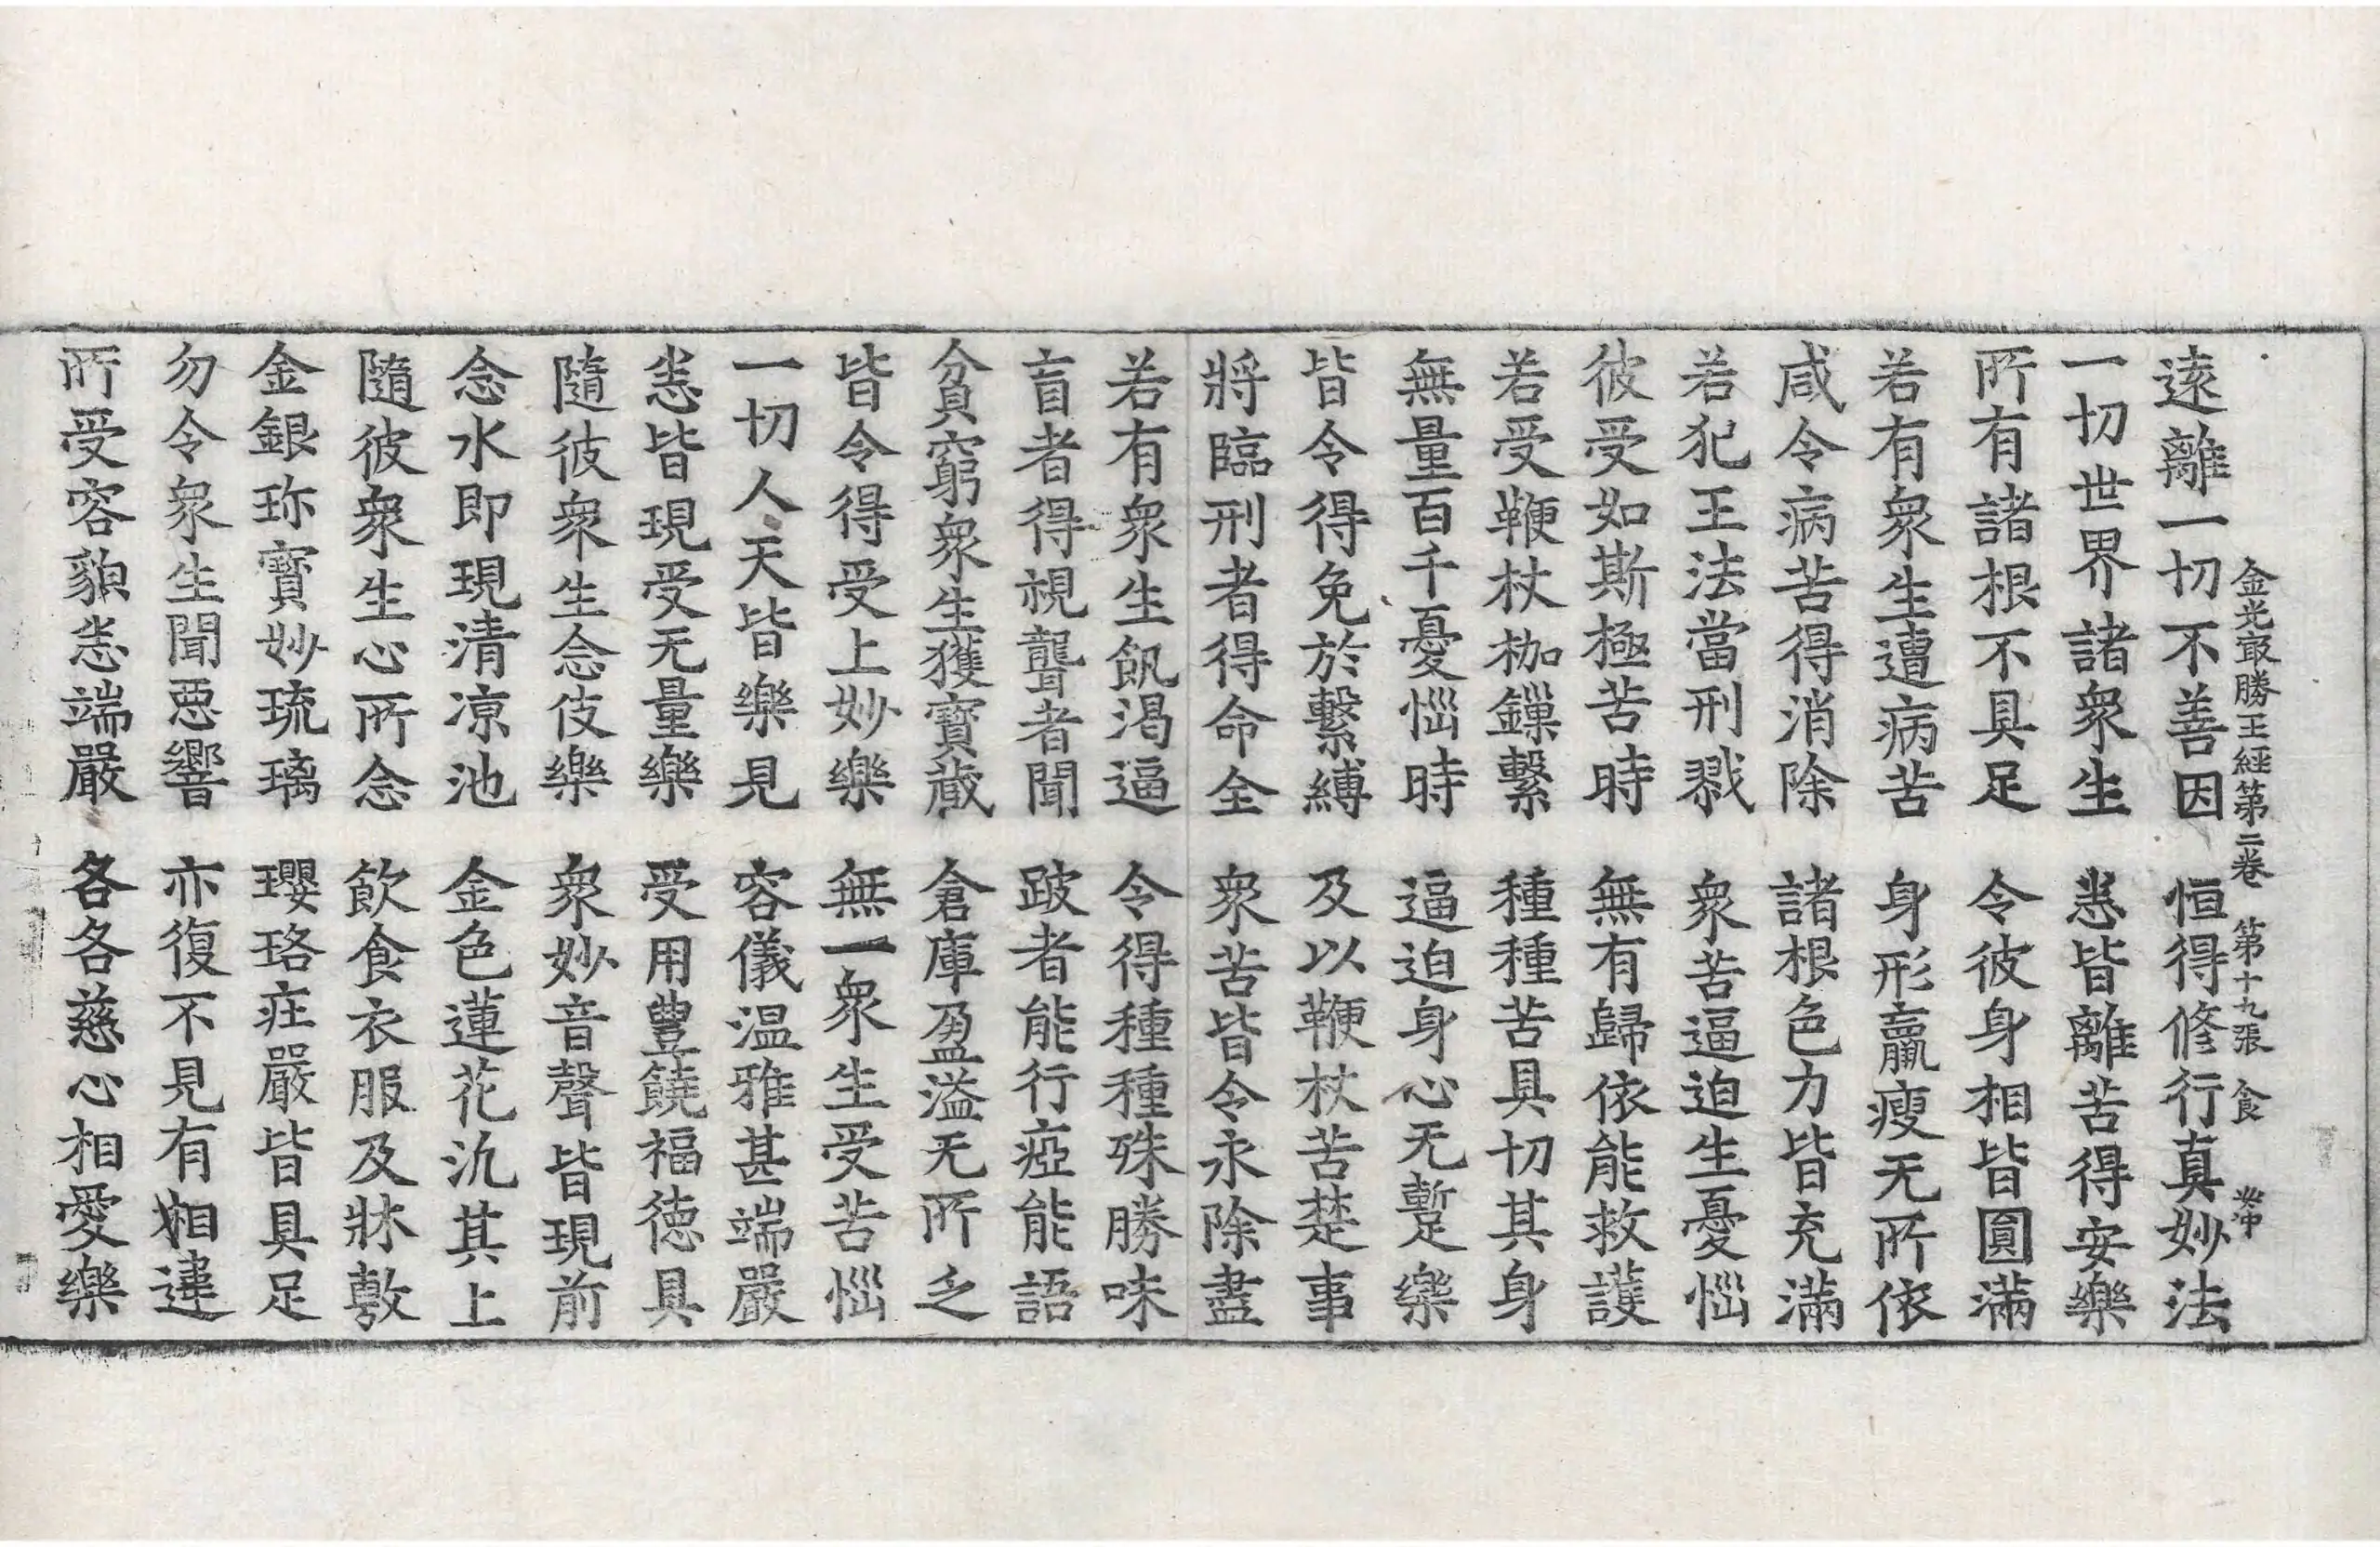 金光㝡勝王經第二卷 第十九張 食
遠離一切不善因 恒得修行真妙法
一切世界諸衆生 悉皆離苦得安樂
所有諸根不具足 令彼身相皆圓滿
若有衆生遭病苦 身形羸瘦无所依
咸令病苦得消除 諸根色力皆充滿
若犯王法當刑戮 衆苦逼迫生憂惱
彼受如斯極苦時 無有歸依能救護
若受鞭杖枷鏁繫 種種苦具切其身
無量百千憂惱時 逼迫身心无暫樂
皆令得免於繫縛 及以鞭杖苦楚事
將臨刑者得命全 衆苦皆令永除盡
若有衆生飢渴逼 令得種種殊勝味
盲者得視聾者聞 跛者能行瘂能語
貧窮衆生獲寶藏 倉庫盈溢无所乏
皆令得受上妙樂 無一衆生受苦惱
一切人天皆樂見 容儀温雅甚端嚴
悉皆現受无量樂 受用豊饒福德具
隨彼衆生念伎樂 衆妙音聲皆現前
念水即現清涼池 金色蓮花汎其上
隨彼衆生心所念 飲食衣服及牀敷
金銀珎寶妙琉璃 瓔珞莊嚴皆具足
勿令衆生聞惡響 亦復不見有相違
所受容貌悉端嚴 各各慈心相愛樂